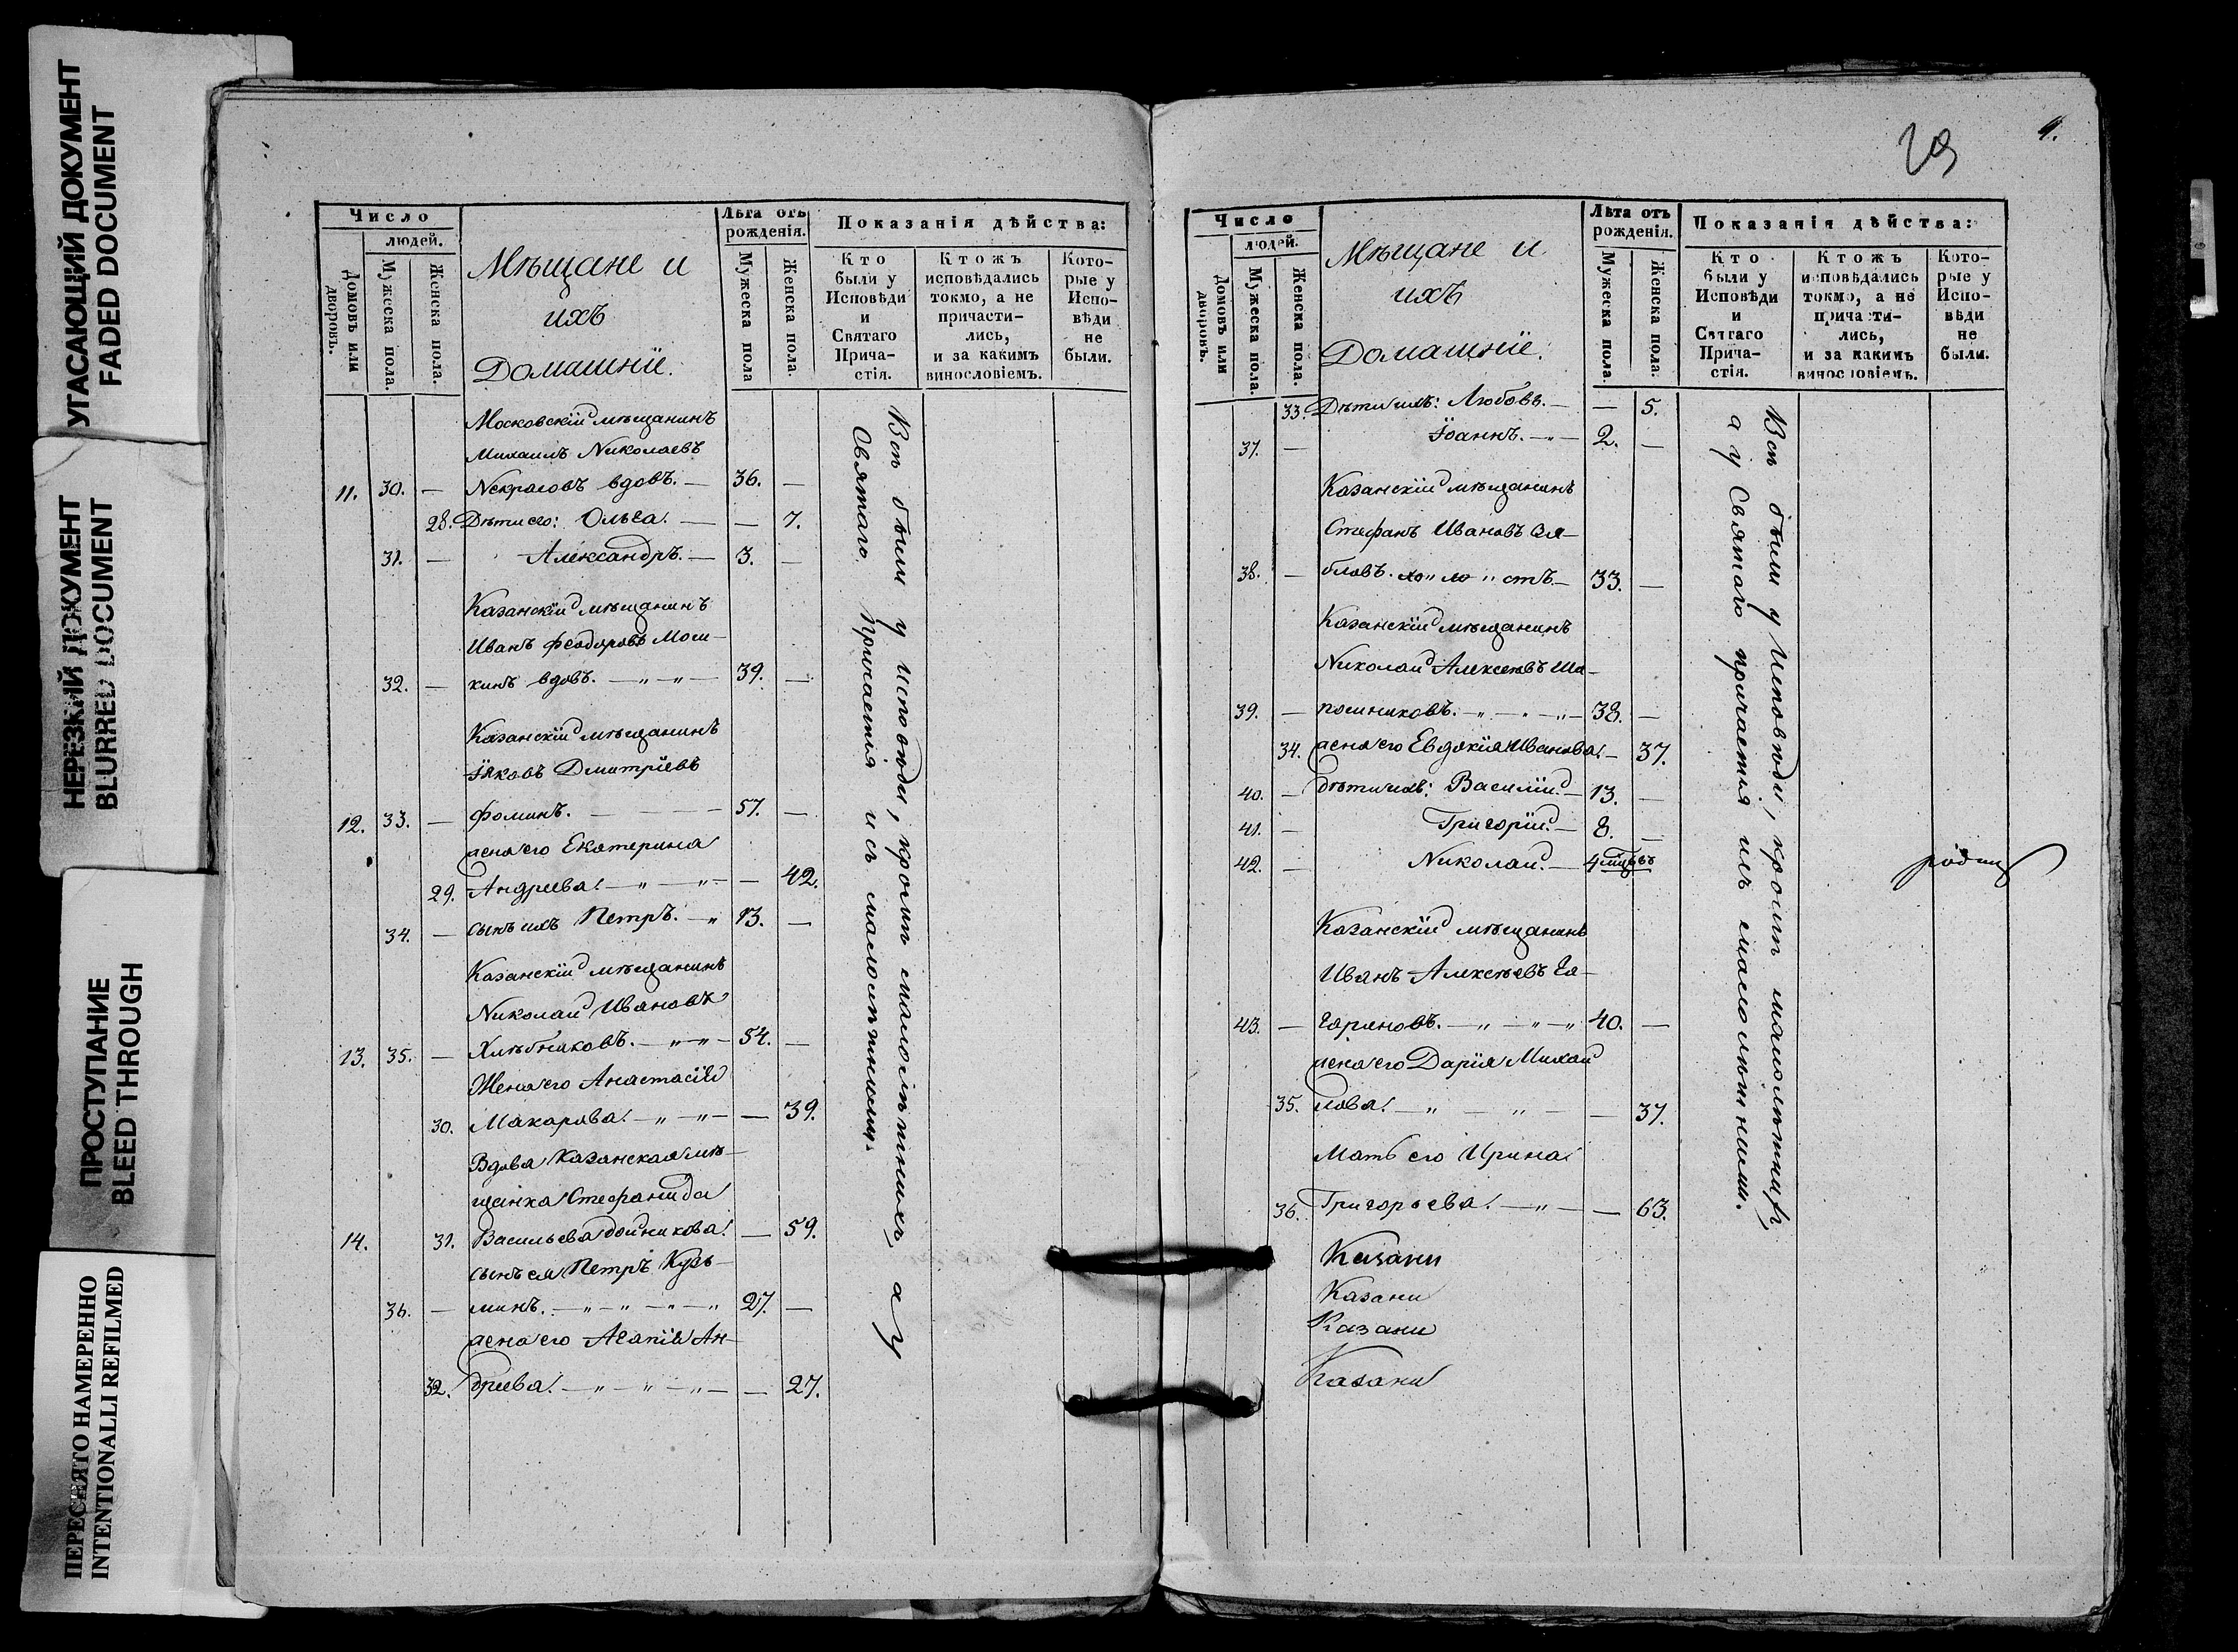 УГАСАЮЩИЙ ДОКУМЕНТ
FADED DOCUMENT
НЕРЕЗКИЙ ДОКУМЕНТ
BLURRED DOCUMENT
ПРОСТУПАНИЕ
BLEED THROUGH
ПЕРЕСНЯТО НАМЕРЕННО
INTENTIONALLI REFILMED
Число
людей.
Домовъ или дворовъ.
Мужеска пола.
Женска пола.
Мѣщане и
ихъ
Домашніе.
Лѣта отъ
рожденія.
Мужеска пола
Женска пола.
Показанія дѣйства:
Кто
были у
Исповѣди
и
Святаго
Прича-
стія.
Ктожъ
исповѣдались
токмо, а не
причасти-
лись,
и за какимъ
винословіемъ.
Кото-
рые у
Испо-
вѣди
не
были.
Московскій мѣщанинъ
Михаилъ Николаевъ
11. 30. — Некрасовъ вдовъ. — 36. —
28. Дѣти его: Ольга. — — 7.
31. — Александръ. — 3. —
Казанскій мѣщанинъ
Иванъ Феодоровъ Мош-
32. — кинъ вдовъ. — „ — „ — 39. —
Казанскій мѣщанинъ
Іаковъ Дмитріевъ
12. 33. — Фоминъ. — — — 57. —
жена его Екатерина
29. Андреева. — „ — „ — — 42.
34. — сынъ ихъ Петръ. — „ 13. —
Казанскій мѣщанинъ
Николай Ивановъ
13. 35. — Хлѣбниковъ. — „ — „ — 54. —
Жена его Анастасія
30. Макарова. — „ — „ — — 39.
Вдова Казанская мѣ-
щанка Стефанида
14. 31. Васильева Дойникова. — 59.
сынъ ея Петръ Кузь-
36. — минъ. — „ — „ — „ — „ 27. —
жена его Агапія Ан-
32. дреева. — „ — „ — „ — — 27.
Всѣ были у исповѣди, кромѣ малолѣтнихъ, а у
Святаго Причастія и съ малолѣтними.
29
4.
Число
людей.
Домовъ или дворовъ.
Мужеска пола.
Женска пола.
Мѣщане и
ихъ
Домашніе.
Лѣта отъ
рожденія.
Мужеска пола.
Женска пола.
Показанія дѣйства:
Кто
были у
Исповѣди
и
Святаго
Прича-
стія.
Ктожъ
исповѣдались
токмо, а не
причасти-
лись,
и за какимъ
винословіемъ.
Кото-
рые у
Испо-
вѣди
не
были.
33. Дѣти ихъ: Любовь. — — 5.
37. — Іоаннъ. — „ — 2. —
Казанскій мѣщанинъ
Стефанъ Ивановъ
38. — бловъ. хо „ ло „ стъ. — 33. —
Казанскій мѣщанинъ
Николай Алексѣевъ Ша-
39. — пошниковъ. — „ — „ — „ — 38. —
34. жена его Евдокія Иванова. — 37.
40. — дѣти ихъ: Василій. — 13. —
41. — Григорій. — 8. —
42. — Николай. — 4 мцвъ
Казанскій мѣщанинъ
Иванъ Алексѣевъ Га-
43. — гариновъ. — „ — „ — „ 40. —
жена его Дарія Михай
35. лова. — „ — „ — — 37.
Мать его Ирина
36. Григорьева. — „ — — 63.
Казани
Казани
Казани
Казани
Всѣ были у Исповѣди, кромѣ малолѣтнихъ,
а у Святаго причастія и съ малолѣтними.